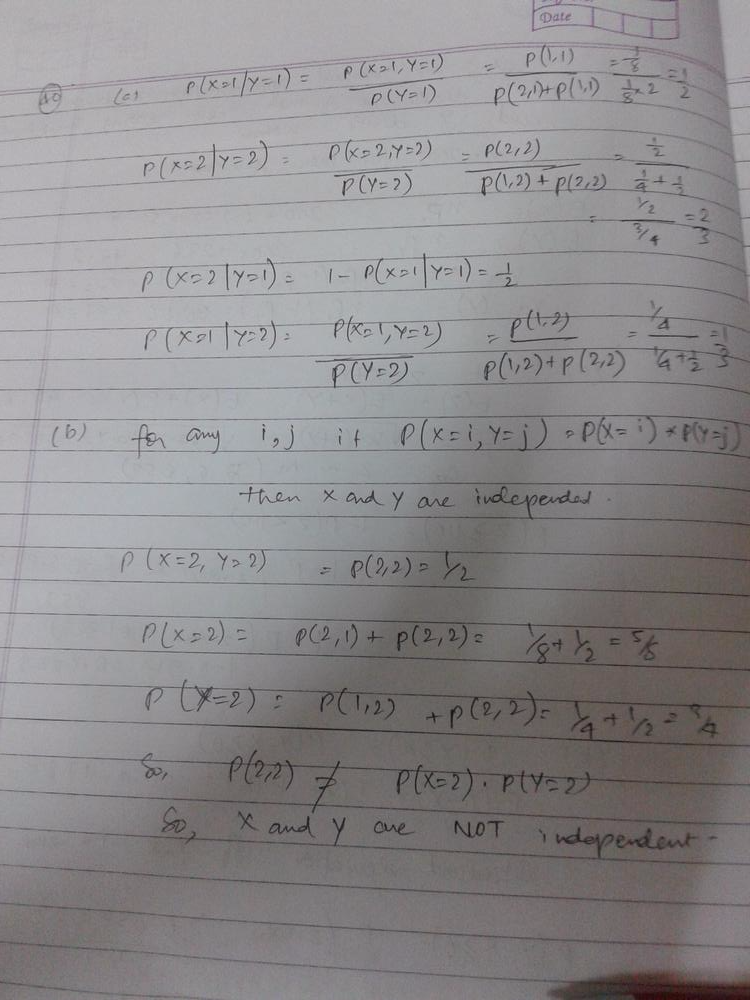 Date
40 (a) P(X=1|Y=1) = P(X=1, Y=1) / P(Y=1) = P(1,1) / P(2,1)+P(1,1) = 1/8 / 1/8 × 2 = 1/2
P(X=2|Y=2) = P(X=2, Y=2) / P(Y=2) = P(2,2) / P(1,2) + P(2,2) = 1/2 / 1/4 + 1/2
= 1/2 / 3/4 = 2/3
P(X=2|Y=1) = 1 - P(X=1|Y=1) = 1/2
P(X=1|Y=2) = P(X=1, Y=2) / P(Y=2) = P(1,2) / P(1,2) + P(2,2) = 1/4 / 1/4 + 1/2 = 1/3
(b) for any i, j if P(X=i, Y=j) = P(X=i) * P(Y=j)
then X and Y are independed.
P(X=2, Y=2) = P(2,2) = 1/2
P(X=2) = P(2,1) + P(2,2) = 1/8 + 1/2 = 5/8
P(Y=2) = P(1,2) + P(2,2) = 1/4 + 1/2 = 3/4
So, P(2,2) ≠ P(X=2) . P(Y=2)
So, X and Y are NOT independent.